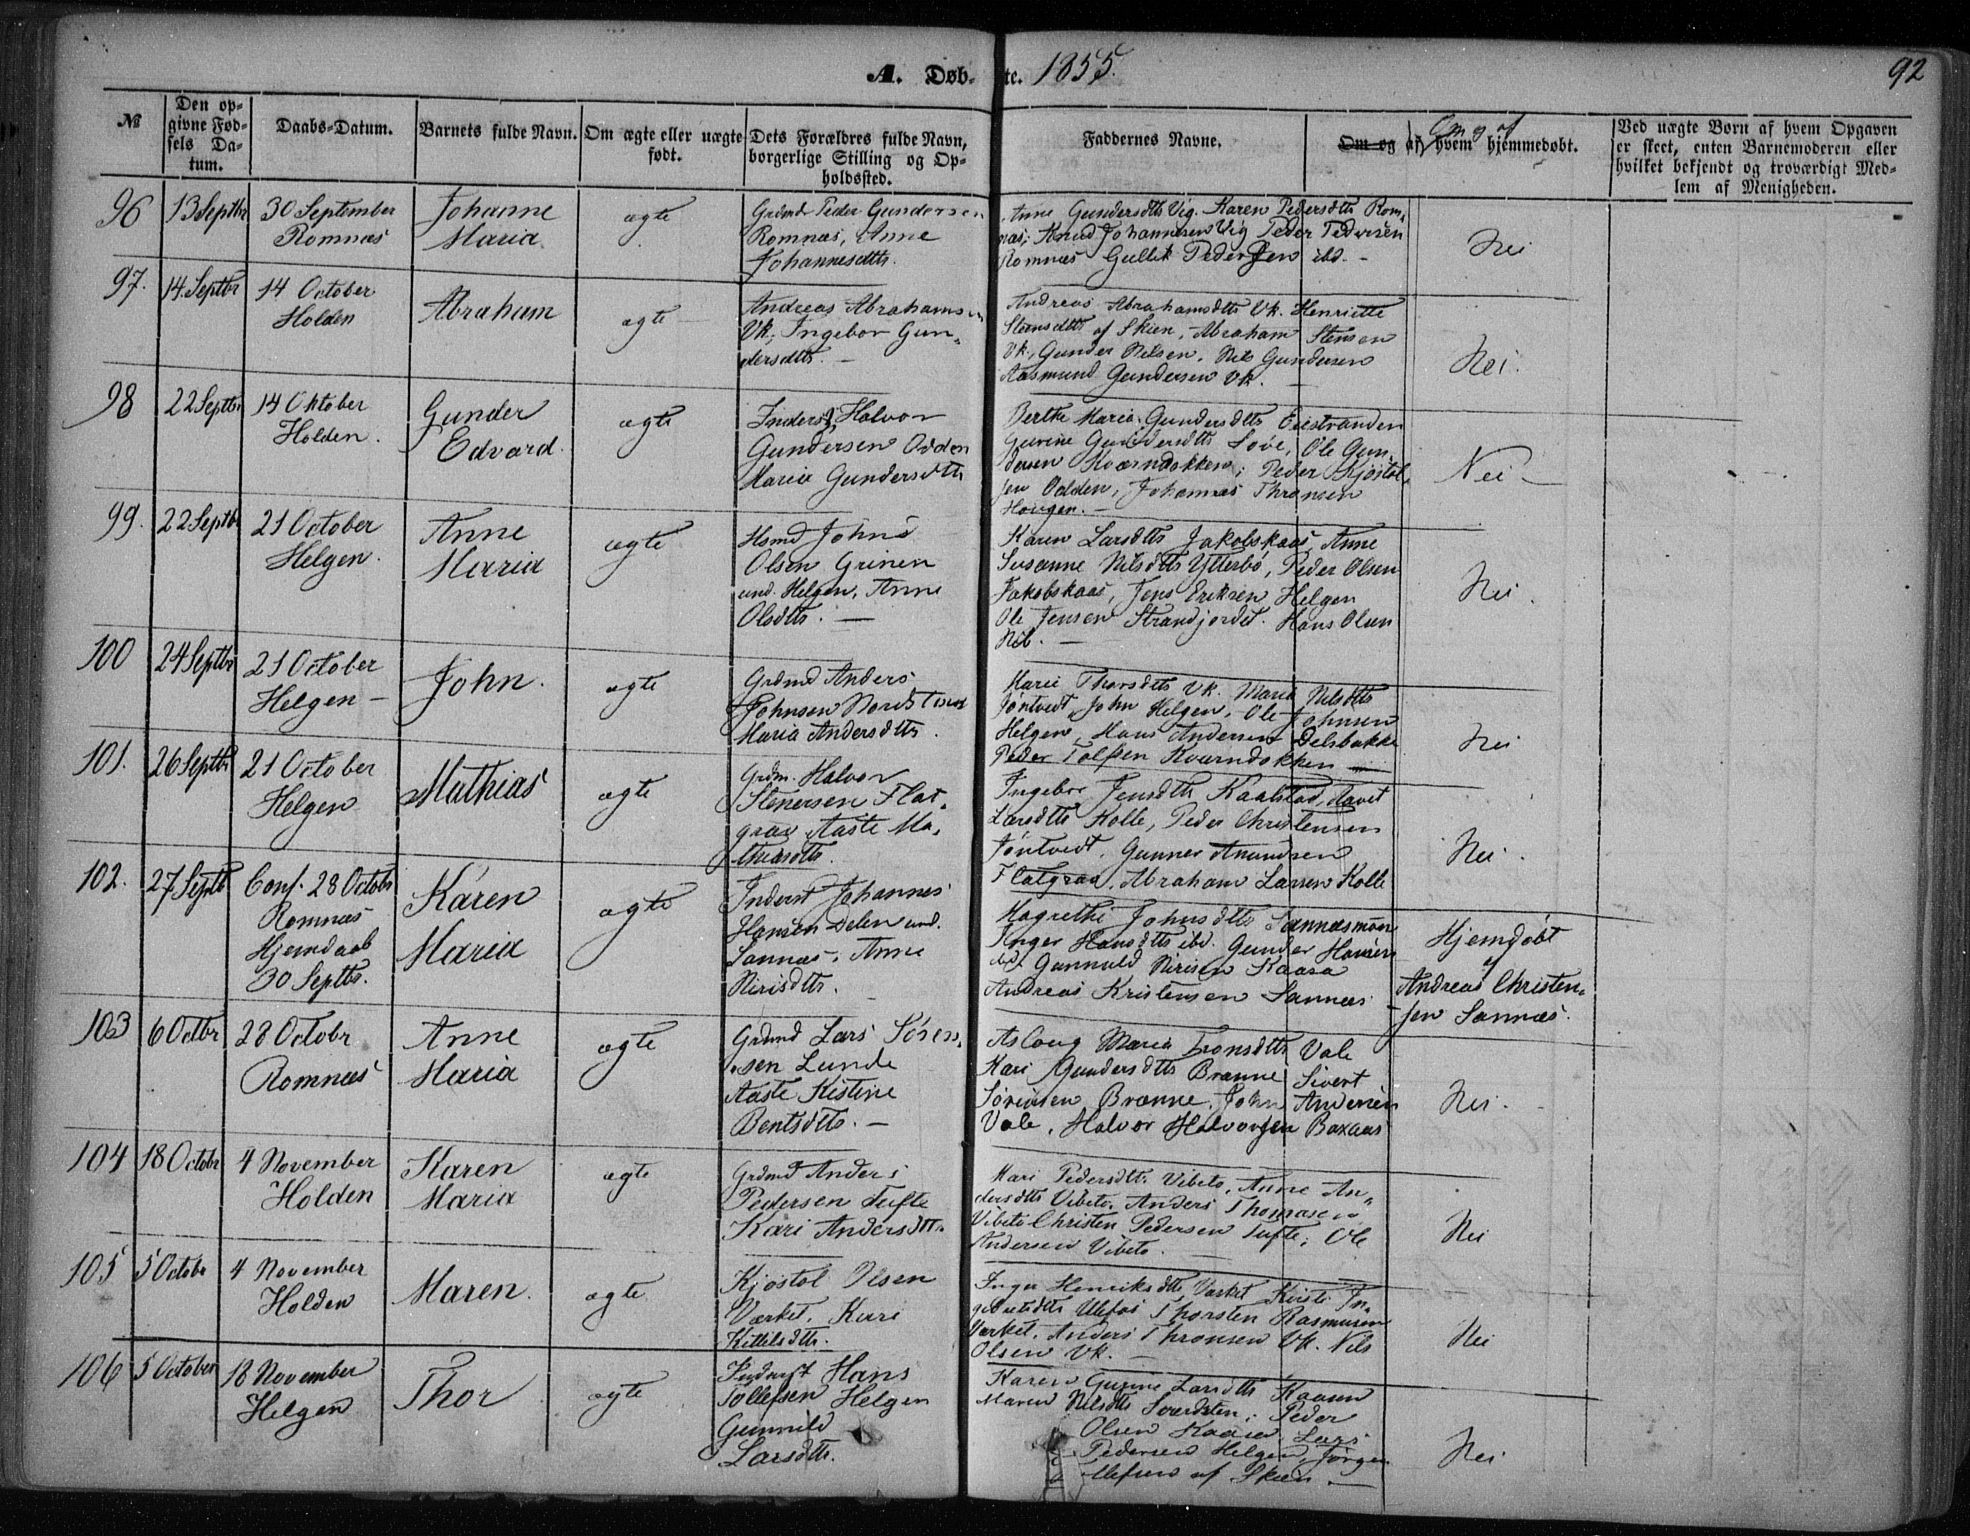 A. Døb- te. 1855. 92
№
Den op-
givne Fød-
sels Da-
tum.
Daabs-Datum.
Barnets fulde Navn.
Om ægte eller uægte
født.
Dets Forældres fulde Navn,
borgerlige Stilling og Op-
holdssted.
Faddernes Navne.
Om og af
Om og af hvem hjemmedøbt.
Ved uægte Børn af hvem Opgaven
er skeet, enten Barnemoderen eller
hvilket bekjendt og troværdigt Med-
lem af Menigheden.
96
13 Septbr
30 September
Romnæs
Johanne
Maria
ægte
Grdmd Peder Gundersen
Romnæs, Anne
Johannesdtts.
Anne Gundersdtts Vig. Karen Pedersdtts Rom-
næs, Knud Johannesen Vig Peder Pedersen
Romnæs Gullik Pedersen ibd. -
Nei
97.
14. Septbr
14 October
Holden
Abraham
ægte
Andreas Abrahamsen
Vk, Ingebor Gun-
dersdtts. -
Andreas Abrahamsdtts Vk. Henriette
Stensdtts af Skien, Abraham Stensen
Vk, Gunder Nilsen, Nils Gundersen
Aasmund Gundersen Vk. -
Nei.
98
22 Septbr
14 Oktober
Holden.
Gunder
Edvard.
ægte
Inders. Halvor
Gundersen Odden
Maria Gundersdtts
Berthe Maria Gundersdtts Eiestranden
Gurine Gundersdtts Love, Ole Gun-
dersen Kværndokken; Peder Kjostol-
sen Odden, Johannes Thronsen
Haugen. -
Nei -
99.
22 Septbr
21 October
Helgen.
Anne
Maria
ægte
Hsmd Johns
Olsen Grinen
und. Helgen, Anne
Olsdtts. -
Karen Larsdtts Jakobskaas, Anne
Susanne Nilsdtts Ytterbø, Peder Olsen
Jakobskaas, Jens Eriksen Helgen
Ole Jensen Strandjordet. Hans Olsen
Nei.
100
24 Septbr
21 October
Helgen -
John.
ægte
Grdmd Anders
Johnsen
Maria Andersdtts.
Marie Thorsdtts Vk. Maria Nilsdtts
Jøntvedt, John Helgen, Ole Johnsen
Helgen, Hans Andersen Delsbakke
Peder Tolfsen Kværndokken
Nei
101.
26 Septbr
21 October
Helgen
Mathias
ægte
Grdm. Halvor
Stenersen Flat-
graa Aaste Ma-
thiasdtts.
Ingebor Jensdtts Kaalstad,
Larsdtts Kolle, Peder Christensen
Jøntvedt, Gunner Amundsen
Flatgraa, Abraham Larsen Kolle
Nei.
102.
27 Septb
Conf. 28 Octobr
Romnæs
Hjemdaab
30 Septbr.
Karen
Maria
ægte
Inderst Johannes
Hansen Delen und.
Sannæs, Anne
Nirisdtts.
Magrethe Johnsdtts Sannæsmoen
Inger Hansdtts ibd. Gunder Hansen
ibd. Gunnuld Nirisen Kaasa
Andreas Kristensen Sannæs
Hjemdøbt
af
Andreas Christen-
sen Sannæs.
103
6 Octbr
28 Octobr
Romnæs
Anne
Maria
ægte
Grdmd Lars Søren-
sen Lunde
Aaste Kistine
Bentsdtts. -
Aslaug Maria Tronsdtts Vale
Kari Gundersdtts Brænne Sivert
Sørensen Brænne, John Andersen
Vale, Halvor Halvorsen Baxaas
Nei.
104
18 Octobr
4 November
Holden
Karen
Maria
ægte
Grdmd Anders
Pedersen Tufte
Kari Andersdtts.
Mari Pedersdtts Vibeto, Anne An-
dersdtts Vibeto, Anders Thomasen
Vibeto Christen Pedersen Tufte, Ole
Andersen Vibeto.
Nei
105
5 Octobr
4 November
Holden
Maren.
ægte
Kjøstol Olsen
Værket, Kari
Kittilsdtts.
Inger Henriksdtts Værket Kirsti In-
gebretsdtts Ulefos Thorsten Rasmusen
Værket, Anders Thronsen Vk. Nils
Olsen Vk. -
Nei
106
5 October
18 November
Helgen
Thor
ægte
Inderst Hans
Tollefsen Helgen
Gunnild
Larsdtts.
Karen Gurine Larsdtts Kaasen
Maren Nilsdtts Sværdsten, Peder
Olsen Kaasen, Lars
Pedersen Helgen, Jørgen
af Skien -
Nei